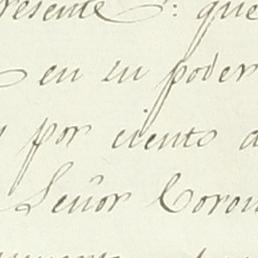 resente s: que
en su poder
por ciento
Señor Coron